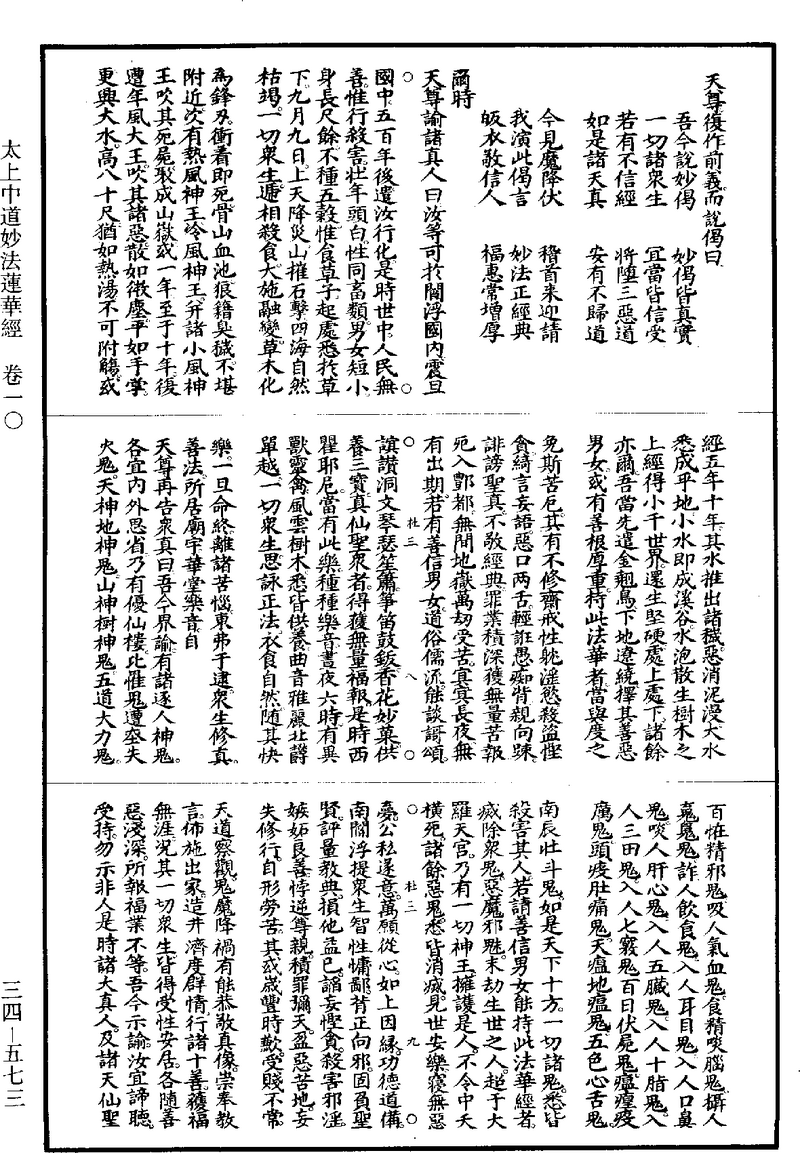 太上中道妙法蓮華經　卷一〇
三四—五七三
天尊復作前義而說偈曰
吾今說妙偈　妙偈皆真實
一切諸衆生　宜當皆信受
若有不信經　將墮三惡道
如是諸天真　安有不歸道
今見魔降伏　稽首來迎請
我演此偈言　妙法正經典
皈依敬信人　福惠常增厚
爾時
天尊諭諸真人曰汝等可於閻浮國內震旦
國中五百年後遣汝行化是時世中人民無
善惟行殺害壯年頭白性同畜類男女短小
身長尺餘不種五穀惟食草子起處悉於草
下九月九日上天降災山摧石擊四海自然
枯竭一切衆生遞相殺食大施融變草木化
爲鋒刃衝着即死骨山血池狼籍臭穢不堪
附近次有熱風神王冷風神王并諸小風神
王吹其死屍聚成山嶽或一年至于十年後
遭年風大王吹其諸惡散如微塵平如手掌
更興大水高八十尺猶如熱湯不可附觸或
經五年十年其水推出諸穢惡消泥漫大水
悉成平地小水即成溪谷水泡散生樹木之
上經得小千世界還生堅硬處上處下諸餘
亦爾吾當先遣金翅鳥下地遼繞擇其善惡
男女或有善根厚重持此法華者當與度之
免斯苦厄其有不修齋戒性躭淫慾殺盜慳
貪綺言妄語惡口兩舌輕誑愚痴背親向踈
誹謗聖真不敬經典罪業積深獲無量苦報
死入酆都無間地獄萬劫受苦冥冥長夜無
有出期若有善信男女道俗儒流能談謌頌
諠讚洞文琴瑟笙簫箏笛鼓鈸香花妙菓供
養三寶真仙聖衆者得獲無量福報是時西
瞿耶尼當有此樂種種樂音晝夜六時有異
獸靈禽風雲樹木悉皆供養曲音雅麗北欝
單越一切衆生思詠正法衣食自然隨其快
樂一旦命終離諸苦惱東弗于逮衆生修真
善法所居廟宇華堂樂音自
天尊再告衆真曰吾今界諭有諸逐人神鬼
各宜內外思省乃有優仙樓此惟鬼遭空失
火鬼天神地神鬼山神樹神鬼五道大力鬼
百怪精邪鬼吸人氣血鬼食精啖腦鬼攝人
魂魘鬼詐人飲食鬼入人耳目鬼入人口鼻
鬼啖人肝心鬼入人五臟鬼入人十指鬼入
人三田鬼入人七竅鬼百日伏屍鬼瘟㾮疫
癘鬼頭疫肚痛鬼天瘟地瘟鬼五色心舌鬼
南辰北斗鬼如是天下十方一切諸鬼悉皆
殺害其人若請善信男女能持此法華經者
滅除衆鬼惡魔邪魅末劫生世之人超于大
羅天宮乃有一切神王擁護是人不令中夭
橫死諸餘惡鬼悉皆消滅見世安樂寢無惡
憂公私遂意萬願從心如上因緣功德道備
南閻浮提衆生智性慵鄙背正向邪固負聖
賢評量教典損他益已謟妄慳貪殺害邪淫
嫉妬良善悖逆尊親積罪彌天盈惡苦地妄
失修行自形勞苦其或歲豐時歉受賤不常
天道察觀鬼魔降禍有能恭敬真像崇奉教
言佈施出家造井濟度群情行諸十善獲福
無涯況其一切衆生皆得受性安居各隨善
惡淺深所報福業不等吾今示諭汝宜諦聽
受持勿示非人是時諸大真人及諸天仙聖
杜三　八
杜三　九